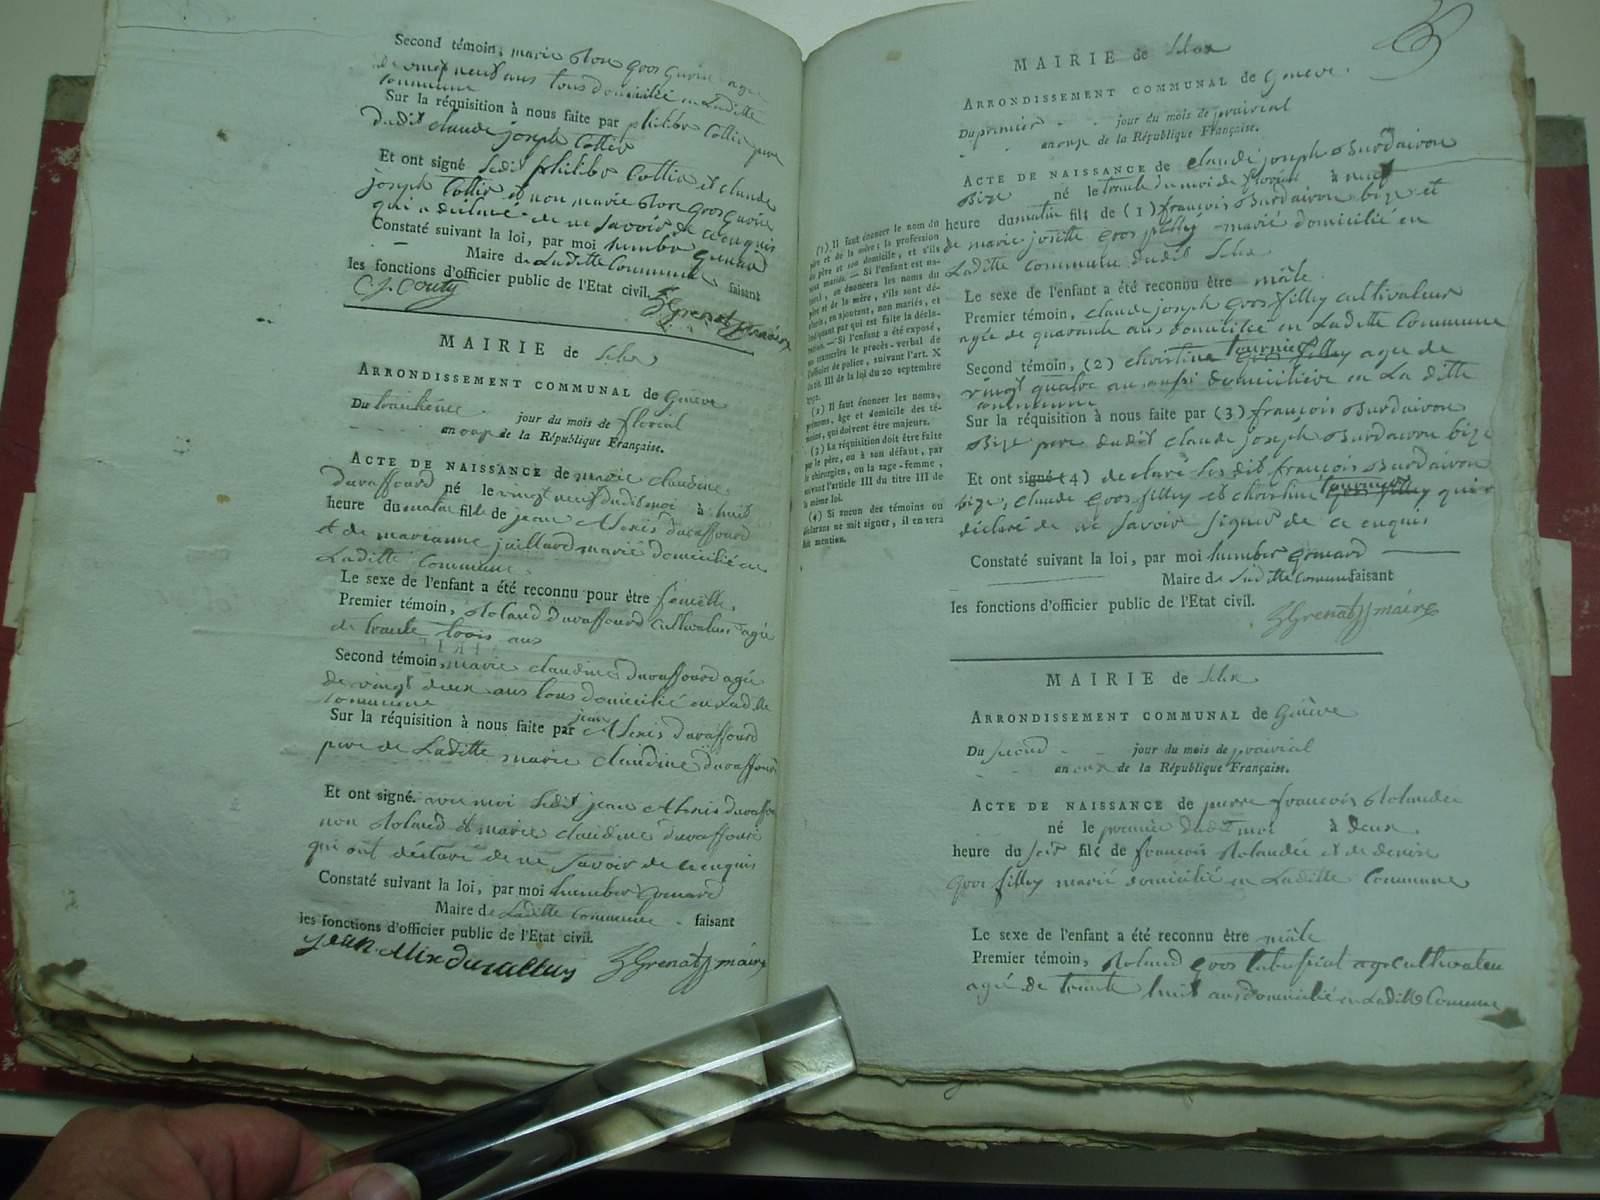 Second témoin, marie Rose gros gurin agée
de vingt neuf ans tous domicilié en Laditte
Commune
Sur la réquisition à nous faite par philibr Cottie pere
dudit claude joseph Cottie
Et ont signé ledit philibr Cottie et claude
joseph Cottie et non marie Rose gros gurin
qui a déclaré de ne savoir de ce enquis
Constaté suivant la loi, par moi humber grenard
Maire de Laditte Commune faisant
les fonctions d'officier public de l'Etat civil.
grenard maire
MAIRIE de
ARRONDISSEMENT COMMUNAL de Genève
Du trentième jour du mois de floréal
an onze de la République Française.
ACTE DE NAISSANCE de marie claudine
Duraffourd né le vingt neuf dudit moi à huit
heure du matin fille de jean Alexis duraffourd
et de marianne juillard marié domicilié en
Laditte Commune.
Le sexe de l'enfant a été reconnu pour être femelle.
Premier témoin, Roland duraffourd cultivateur agé
de trente trois ans
Second témoin, marie claudine duraffourd agé
de vingt deux ans tous domicilié en Laditte
Commune
Sur la réquisition à nous faite par jean Alexis duraffourd
pere de Laditte marie claudine duraffourd
Et ont signé avec moi ledit jean Alexis duraffou
non Roland et marie claudine duraffourd
qui ont déclaré de ne savoir de ce enquis
Constaté suivant la loi, par moi humber grenard
Maire de Laditte Commune faisant
les fonctions d'officier public de l'Etat civil.
jean Alexis duraffour grenard maire
(1) Il faut énoncer le nom du
père et de la mère; la profession
du père et son domicile, et s'ils
sont mariés. — Si l'enfant est na-
turel, on énoncera les noms du
père et de la mère, s'ils sont dé-
clarés, en ajoutant, non mariés, et
indiquant par qui est faite la décla-
ration. — Si l'enfant a été exposé,
on transcrira le procès-verbal de
l'officier de police, suivant l'art. X
du tit. III de la loi du 20 septembre
1792.
(2) Il faut énoncer les noms,
prénoms, âge et domicile des té-
moins, qui doivent être majeurs.
(3) La réquisition doit être faite
par le père, ou à son défaut, par
le chirurgien, ou la sage-femme,
suivant l'article III du titre III de
la même loi.
(4) Si aucun des témoins ou
déclarans ne sait signer, il en sera
fait mention.
MAIRIE de
ARRONDISSEMENT COMMUNAL de Genève.
Du premier jour du mois de prairial
an onze de la République Française.
ACTE DE NAISSANCE de claude joseph Burdairon
Bize né le trente du moi de floréal à neuf
heure du matin fils de (1) françois Burdairon bize et
de marie josette gros filley marié domicilié en
Laditte commune dudit
Le sexe de l'enfant a été reconnu être mâle
Premier témoin, claude joseph gros filley cultivateur
agée de quarante ans domicilié en Laditte Commune
Second témoin, (2) christine tournier agée de
vingt quatre an aussi domicilière en La ditte
commune
Sur la réquisition à nous faite par (3) françois Burdairon
Bize pere dudit claude joseph Burdairon bize
Et ont signé (4) declaré les dit françois Burdairon
bize, claude gros filley et christine tournier qui a
déclaré de ne savoir signer de ce enquis
Constaté suivant la loi, par moi humber grenard
Maire de Laditte commune faisant
les fonctions d'officier public de l'Etat civil.
grenard maire
MAIRIE de
ARRONDISSEMENT COMMUNAL de Genève
Du second jour du mois de prairial
an onze de la République Française.
ACTE DE NAISSANCE de pierre françois Rolandez
né le premier dudit moi à deux
heure du soir fils de françois Rolandez et de denise
gros filley marié domicilié en Laditte Commune
Le sexe de l'enfant a été reconnu être mâle
Premier témoin, Roland gros agé cultivateur
agé de trente huit ans domicilié en Laditte Commune